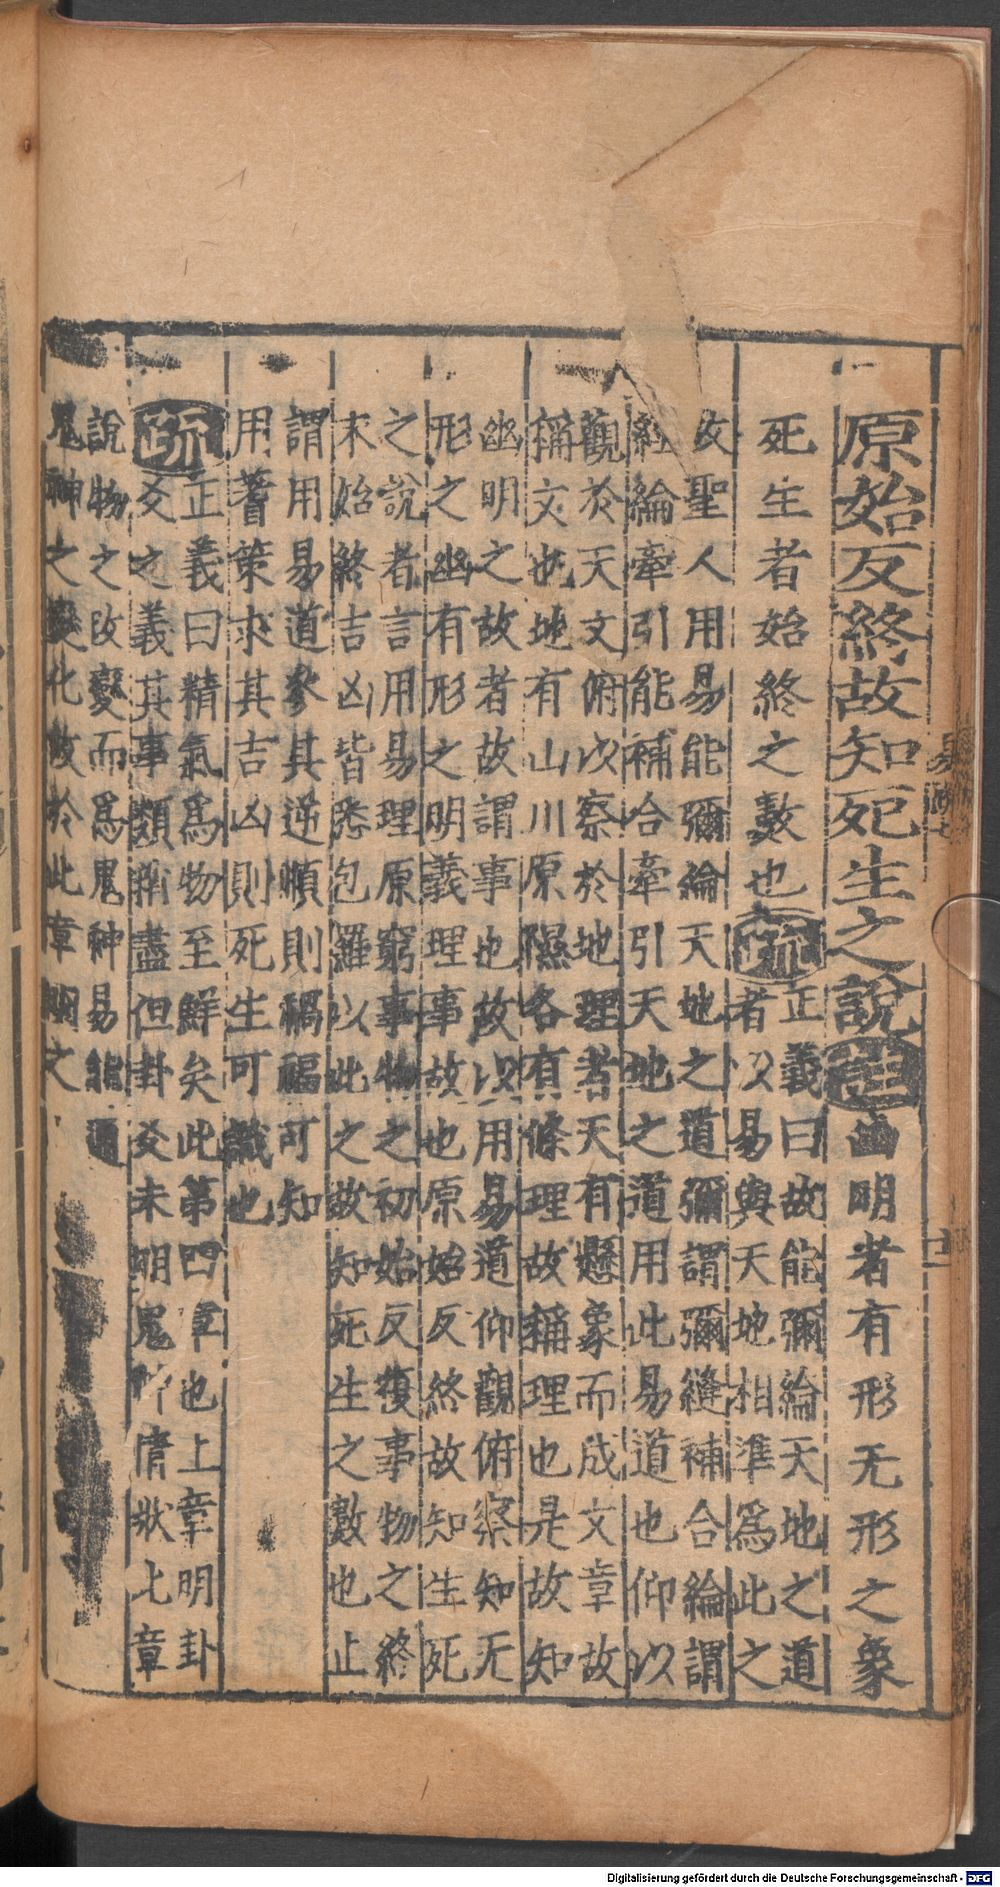 原始反終故知死生之說註幽明者有形无形之象
死生者始終之數也疏
正義曰故能彌綸天地之道
者以易與天地相準爲此之
故聖人用易能彌綸天地之道彌謂彌縫補合綸謂
經綸牽引能補合牽引天地之道用此易道也仰以
觀於天文俯以察於地理者天有懸象而成文章故
稱文也地有山川原隰各有條理故稱理也是故知
幽明之故者故謂事也故以用易道仰觀俯察知无
形之幽有形之明義理事故也原始反終故知生死
之說者言用易理原窮事物之初始反復事物之終
末始終吉凶皆悉包羅以此之故知死生之數也止
謂用易道參其逆順則禍福可知
用蓍策求其吉凶則死生可識也
疏
正義曰精氣爲物至鮮矣此第四章也上章明卦
爻之義其事類稍盡但卦爻未明鬼神情狀此章
說物之改變而爲鬼神易能通
鬼神之變化故於此章明之
易疏七
Digitalisierung gefördert durch die Deutsche Forschungsgemeinschaft - DFG